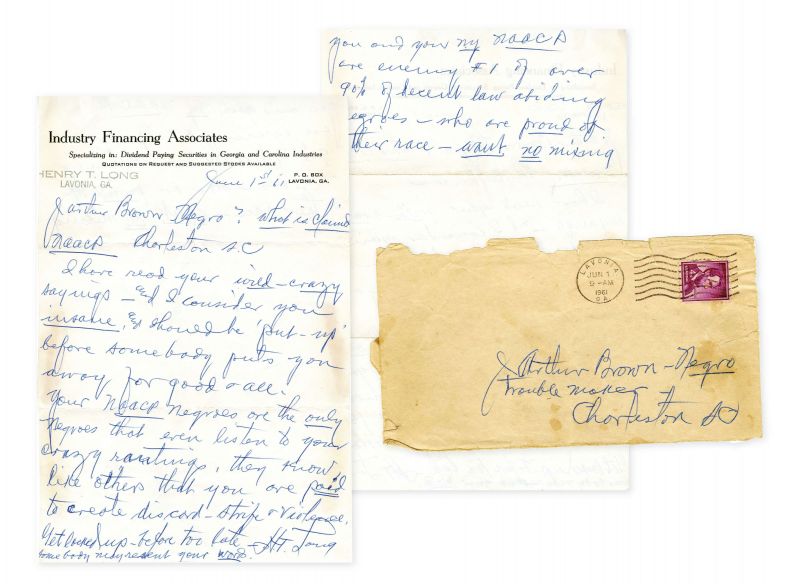 Industry Financing Associates
Specializing in: Dividend Paying Securities in Georgia and Carolina Industries
QUOTATIONS ON REQUEST AND SUGGESTED STOCKS AVAILABLE
HENRY T. LONG
LAVONIA, GA.
P. O. BOX
LAVONIA, GA.
June 1st 61
J Arthur Brown Negro? What is claimed
NAACP Charleston S.C
I have read your wild-crazy
sayings - & I consider you
insane, & should be 'put-up'
before somebody puts you
away for good & all.
Your NAACP Negroes are the only
Negroes that even listen to your
crazy ranting, they know
like others that you are paid
to create discord - strife & violence.
Get locked up - before too late - H.T. Long
somebody may resent your word.
you and your ny NAACP
are enemy #1 of over
90% of decent law abiding
negroes - who are proud of
their race - want no mixing
LAVONIA
JUN 1
9-AM
1961
GA.
J Arthur Brown - Negro
Trouble Maker
Charleston SC